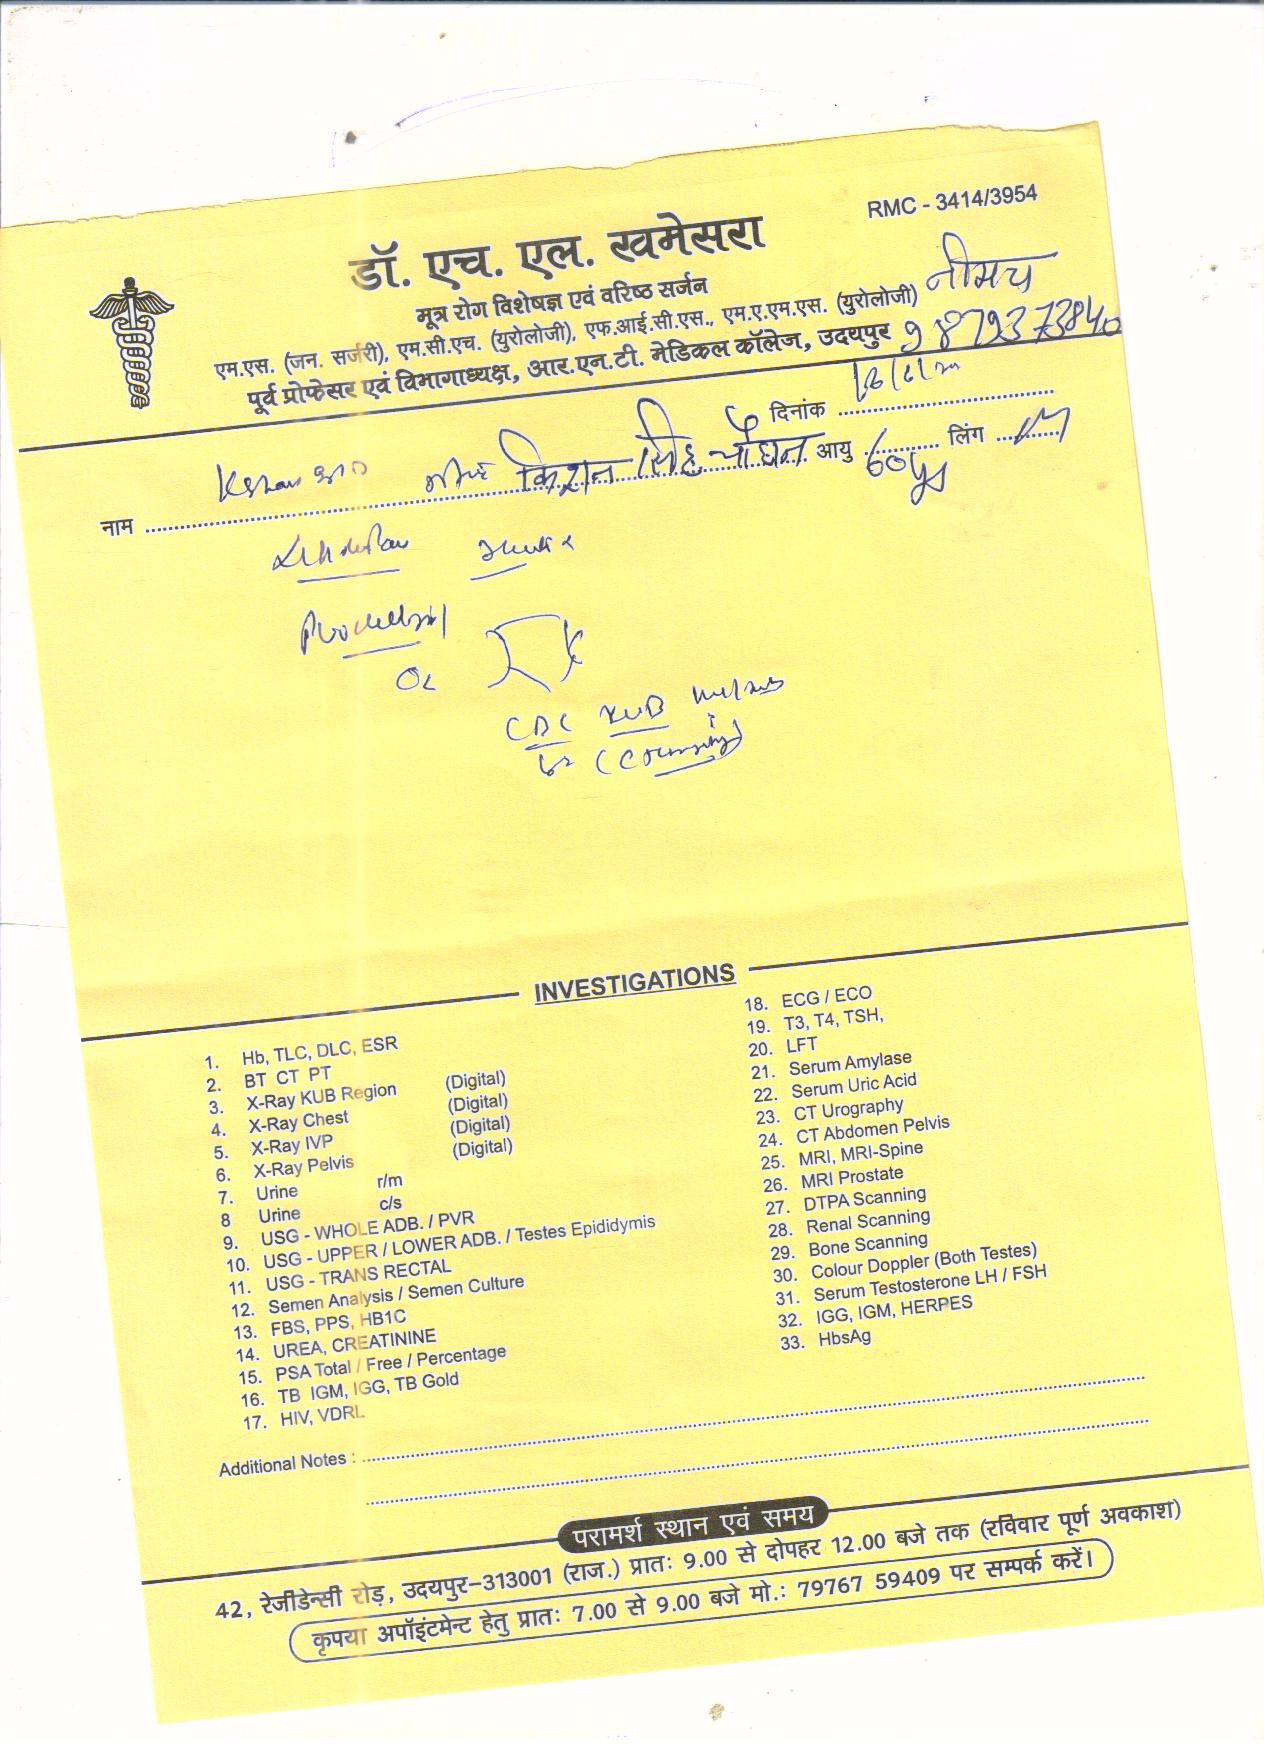 RMC - 3414/3954
डॉ. एच. एल. खमेसरा
मूत्र रोग विशेषज्ञ एवं वरिष्ठ सर्जन
एम.एस. (जन. सर्जरी), एम.सी.एच. (युरोलोजी), एफ.आई.सी.एस., एम.ए.एम.एस. (युरोलोजी)
नीमच
पूर्व प्रोफेसर एवं विभागाध्यक्ष, आर.एन.टी. मेडिकल कॉलेज, उदयपुर
दिनांक
नाम किशन सिंह चौहान आयु 60ys लिंग M
CBC KUB
INVESTIGATIONS
1. Hb, TLC, DLC, ESR
2. BT CT PT
3. X-Ray KUB Region (Digital)
4. X-Ray Chest (Digital)
5. X-Ray IVP (Digital)
6. X-Ray Pelvis (Digital)
7. Urine r/m
8 Urine c/s
9. USG - WHOLE ADB. / PVR
10. USG - UPPER / LOWER ADB. / Testes Epididymis
11. USG - TRANS RECTAL
12. Semen Analysis / Semen Culture
13. FBS, PPS, HB1C
14. UREA, CREATININE
15. PSA Total / Free / Percentage
16. TB IGM, IGG, TB Gold
17. HIV, VDRL
18. ECG / ECO
19. T3, T4, TSH,
20. LFT
21. Serum Amylase
22. Serum Uric Acid
23. CT Urography
24. CT Abdomen Pelvis
25. MRI, MRI-Spine
26. MRI Prostate
27. DTPA Scanning
28. Renal Scanning
29. Bone Scanning
30. Colour Doppler (Both Testes)
31. Serum Testosterone LH / FSH
32. IGG, IGM, HERPES
33. HbsAg
Additional Notes :
परामर्श स्थान एवं समय
42, रेजीडेन्सी रोड़, उदयपुर-313001 (राज.) प्रातः 9.00 से दोपहर 12.00 बजे तक (रविवार पूर्ण अवकाश)
कृपया अपॉइंटमेन्ट हेतु प्रातः 7.00 से 9.00 बजे मो.: 79767 59409 पर सम्पर्क करें।